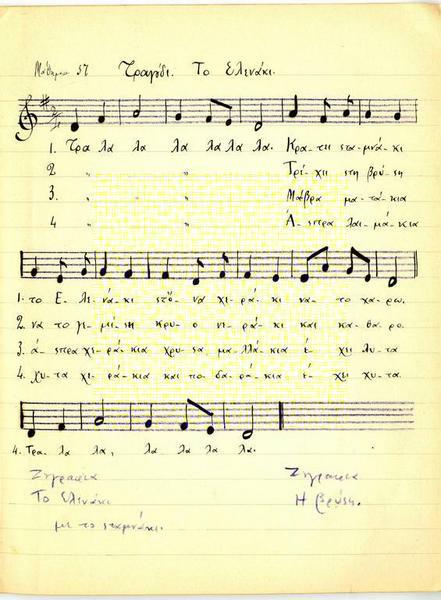 Μάθημα 57 Τραγούδι. Το Ελενάκι.
1. Τρα λα λα λα λα λα λα. Κρα-τεί στα-μνά-κι
2 " " Τρέ-χει στη βρύ-ση
3. " " Μάβρα μα-τά-κια
4 " " Ά-σπρα λαι-μά-κια
1. το Ε-λε νά-κι στό-να χε-ρά-κι να-το χα-ρώ.
2. να το γε-μί-ση κρυ-ο νε-ρά-κι και κα-θα-ρο
3. ά-σπρα χε-ρά-κια χρυ-σα μα-λλά-κια έ-χει λυ-τα
4. χυ-τα χε-ρά-κια και πο-δα-ρά-κια έ-χει χυ-τα.
4. Τρα-λα λα, λα λα λα λα.
Ζηγραφια Ζηγραφια
Το Ελενάκι Η βρύση.
με το σταμνάκι.